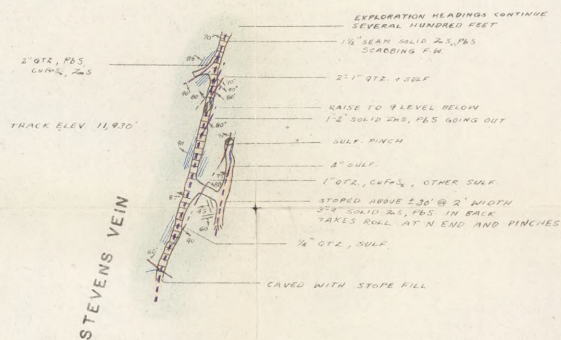 EXPLORATION HEADINGS CONTINUE
SEVERAL HUNDRED FEET
SEAM SOLID ZnS, PbS
SCABBING F.W.
2" QTZ, PbS,
CuFeS₂, ZnS
2"-1" QTZ. + SULF
RAISE TO 9 LEVEL BELOW
1-2" SOLID ZnS, PbS GOING OUT
TRACK ELEV. 11,930'
SULF. PINCH
SULF.
1" QTZ, CuFeS₂, OTHER SULF.
STOPED ABOVE ±30' @ 2' WIDTH
SOLID ZnS, PbS IN BACK
TAKES ROLL AT N END AND PINCHES
QTZ, SULF.
CAVED WITH STOPE FILL
STEVENS VEIN